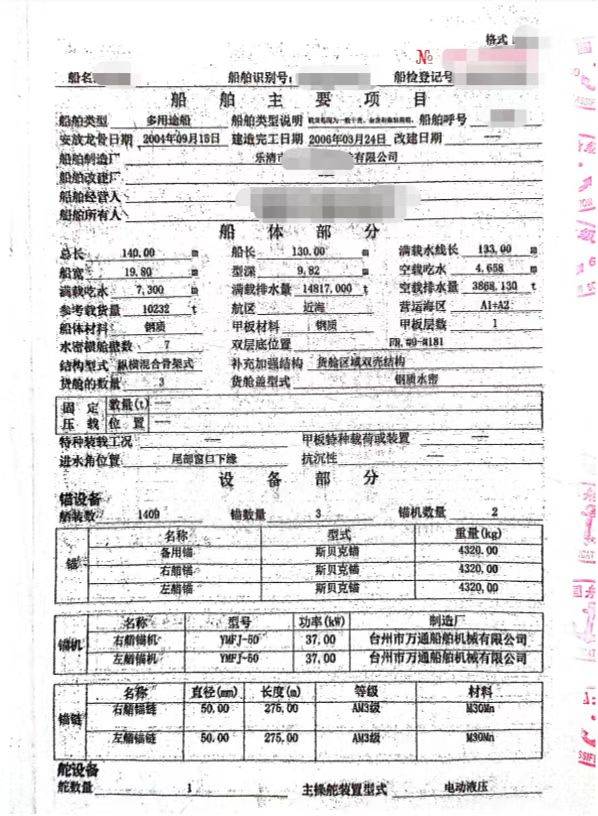 格式
№
船名 船舶识别号: 船检登记号
船舶主要项目
船舶类型 多用途船 船舶类型说明 船舶呼号
安放龙骨日期 2004年09月15日 建造完工日期 2006年03月24日 改建日期 ——
船舶制造厂 乐清市 有限公司
船舶改建厂 ——
船舶经营人
船舶所有人
船体部分
总长 140.00 m 船长 130.00 m 满载水线长 133.00 m
船宽 19.80 m 型深 9.82 m 空载吃水 4.658 m
满载吃水 7.300 m 满载排水量 14817.000 t 空载排水量 3868.130 t
参考载货量 10232 t 航区 近海 营运海区 A1+A2
船体材料 钢质 甲板材料 钢质 甲板层数 1
水密横舱壁数 7 双层底位置 FR.#9-#181
结构型式 纵横混合骨架式 补充加强结构 货舱区域双壳结构
货舱的数量 3 货舱盖型式 钢质水密
固定压载 数量(t) ——
位置 ——
特种装载工况 —— 甲板特种载荷或装置 ——
进水角位置 尾部窗口下缘 抗沉性 ——
设备部分
锚设备
舾装数 1409 锚数量 3 锚机数量 2
锚 名称 型式 重量(kg)
备用锚 斯贝克锚 4320.00
右艏锚 斯贝克锚 4320.00
左艏锚 斯贝克锚 4320.00
锚机 名称 型号 功率(kW) 制造厂
右艏锚机 YMFJ-50 37.00 台州市万通船舶机械有限公司
左艏锚机 YMFJ-50 37.00 台州市万通船舶机械有限公司
锚链 名称 直径(mm) 长度(m) 等级 材料
右艏锚链 50.00 275.00 AM3级 M30Mn
左艏锚链 50.00 275.00 AM3级 M30Mn
舵设备
舵数量 1 主操舵装置型式 电动液压